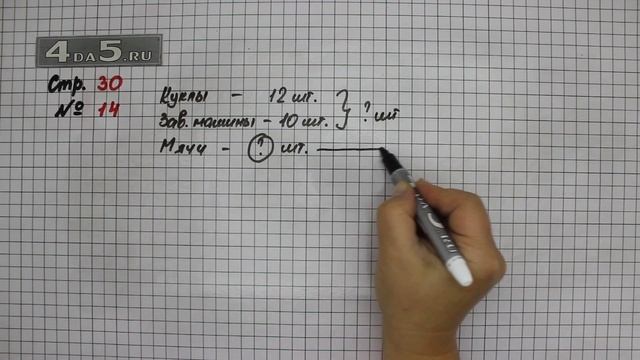 4DA5.RU
Стр. 30
№ 14
Куклы - 12 шт.
Зав. машины - 10 шт. } ? шт
Мячи - ? шт.